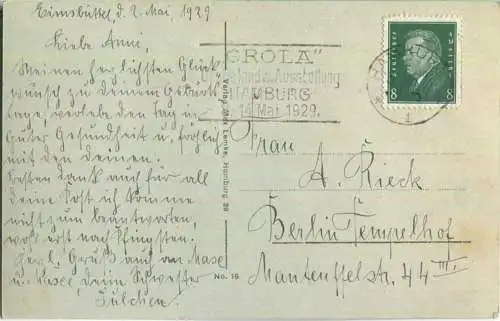 Eimsbüttel, d. 2. Mai, 1929
Liebe Anni,
Meinen herzlichsten Glück
wunsch zu deinem Geburts
tage, verlebe den Tag in
Guter Gesundheit u. fröhlich
mit den deinen.
besten Dank auch für all
deine Post ich komme
nicht zum beantworten,
wohl erst nach Pfingsten.
Herzl. Gruß auch an
u. deine Schwester
Julchen.
Verlag Max Lemke, Hamburg 39
No. 16
GROLA"
Ausstellung
HAMBURG
14. Mai 1929.
Deutsches Reich
8 8
1
Frau
A. Rieck
Berlin Tempelhof
Manteuffelstr. 44 III.